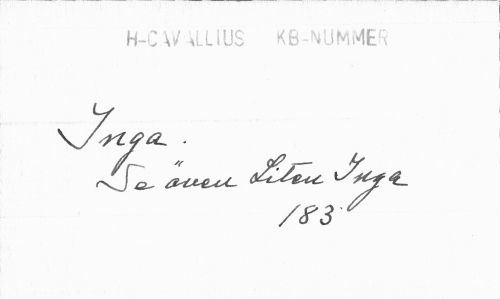 H-CAVALLIUS KB-NUMMER
Inga.
Se även Liten Inga
183